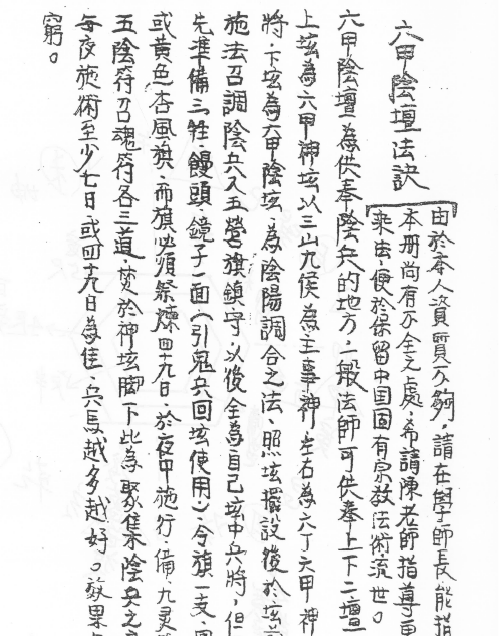 六甲陰壇法訣
由於本人資質不夠，請在學師長能指
本册尚有不全之處，希請陳老師指導
乘法，便於保留中国固有宗教法術流世。
六甲陰壇為供奉陰兵的地方，一般法師可供奉上下二壇
上垓為六甲神垓以三山九侯為主事神左右為六丁六甲神
將，下垓為六甲陰垓，為陰陽調合之法，照垓擺設後於垓
施法召調陰兵入五營旗鎮守，以後全為自己垓中兵將，但
先準備三牲、饅頭、鏡子一面（引鬼兵回垓使用）、令旗一支、
或黃色杏風旗，而旗必須祭煉四十九日，於夜中施行，備九灵
五陰符召魂符各三道，焚於神垓脚下此為聚集陰兵之
每夜施術至少七日或四十九日為佳，兵馬越多越好。效果
窮。